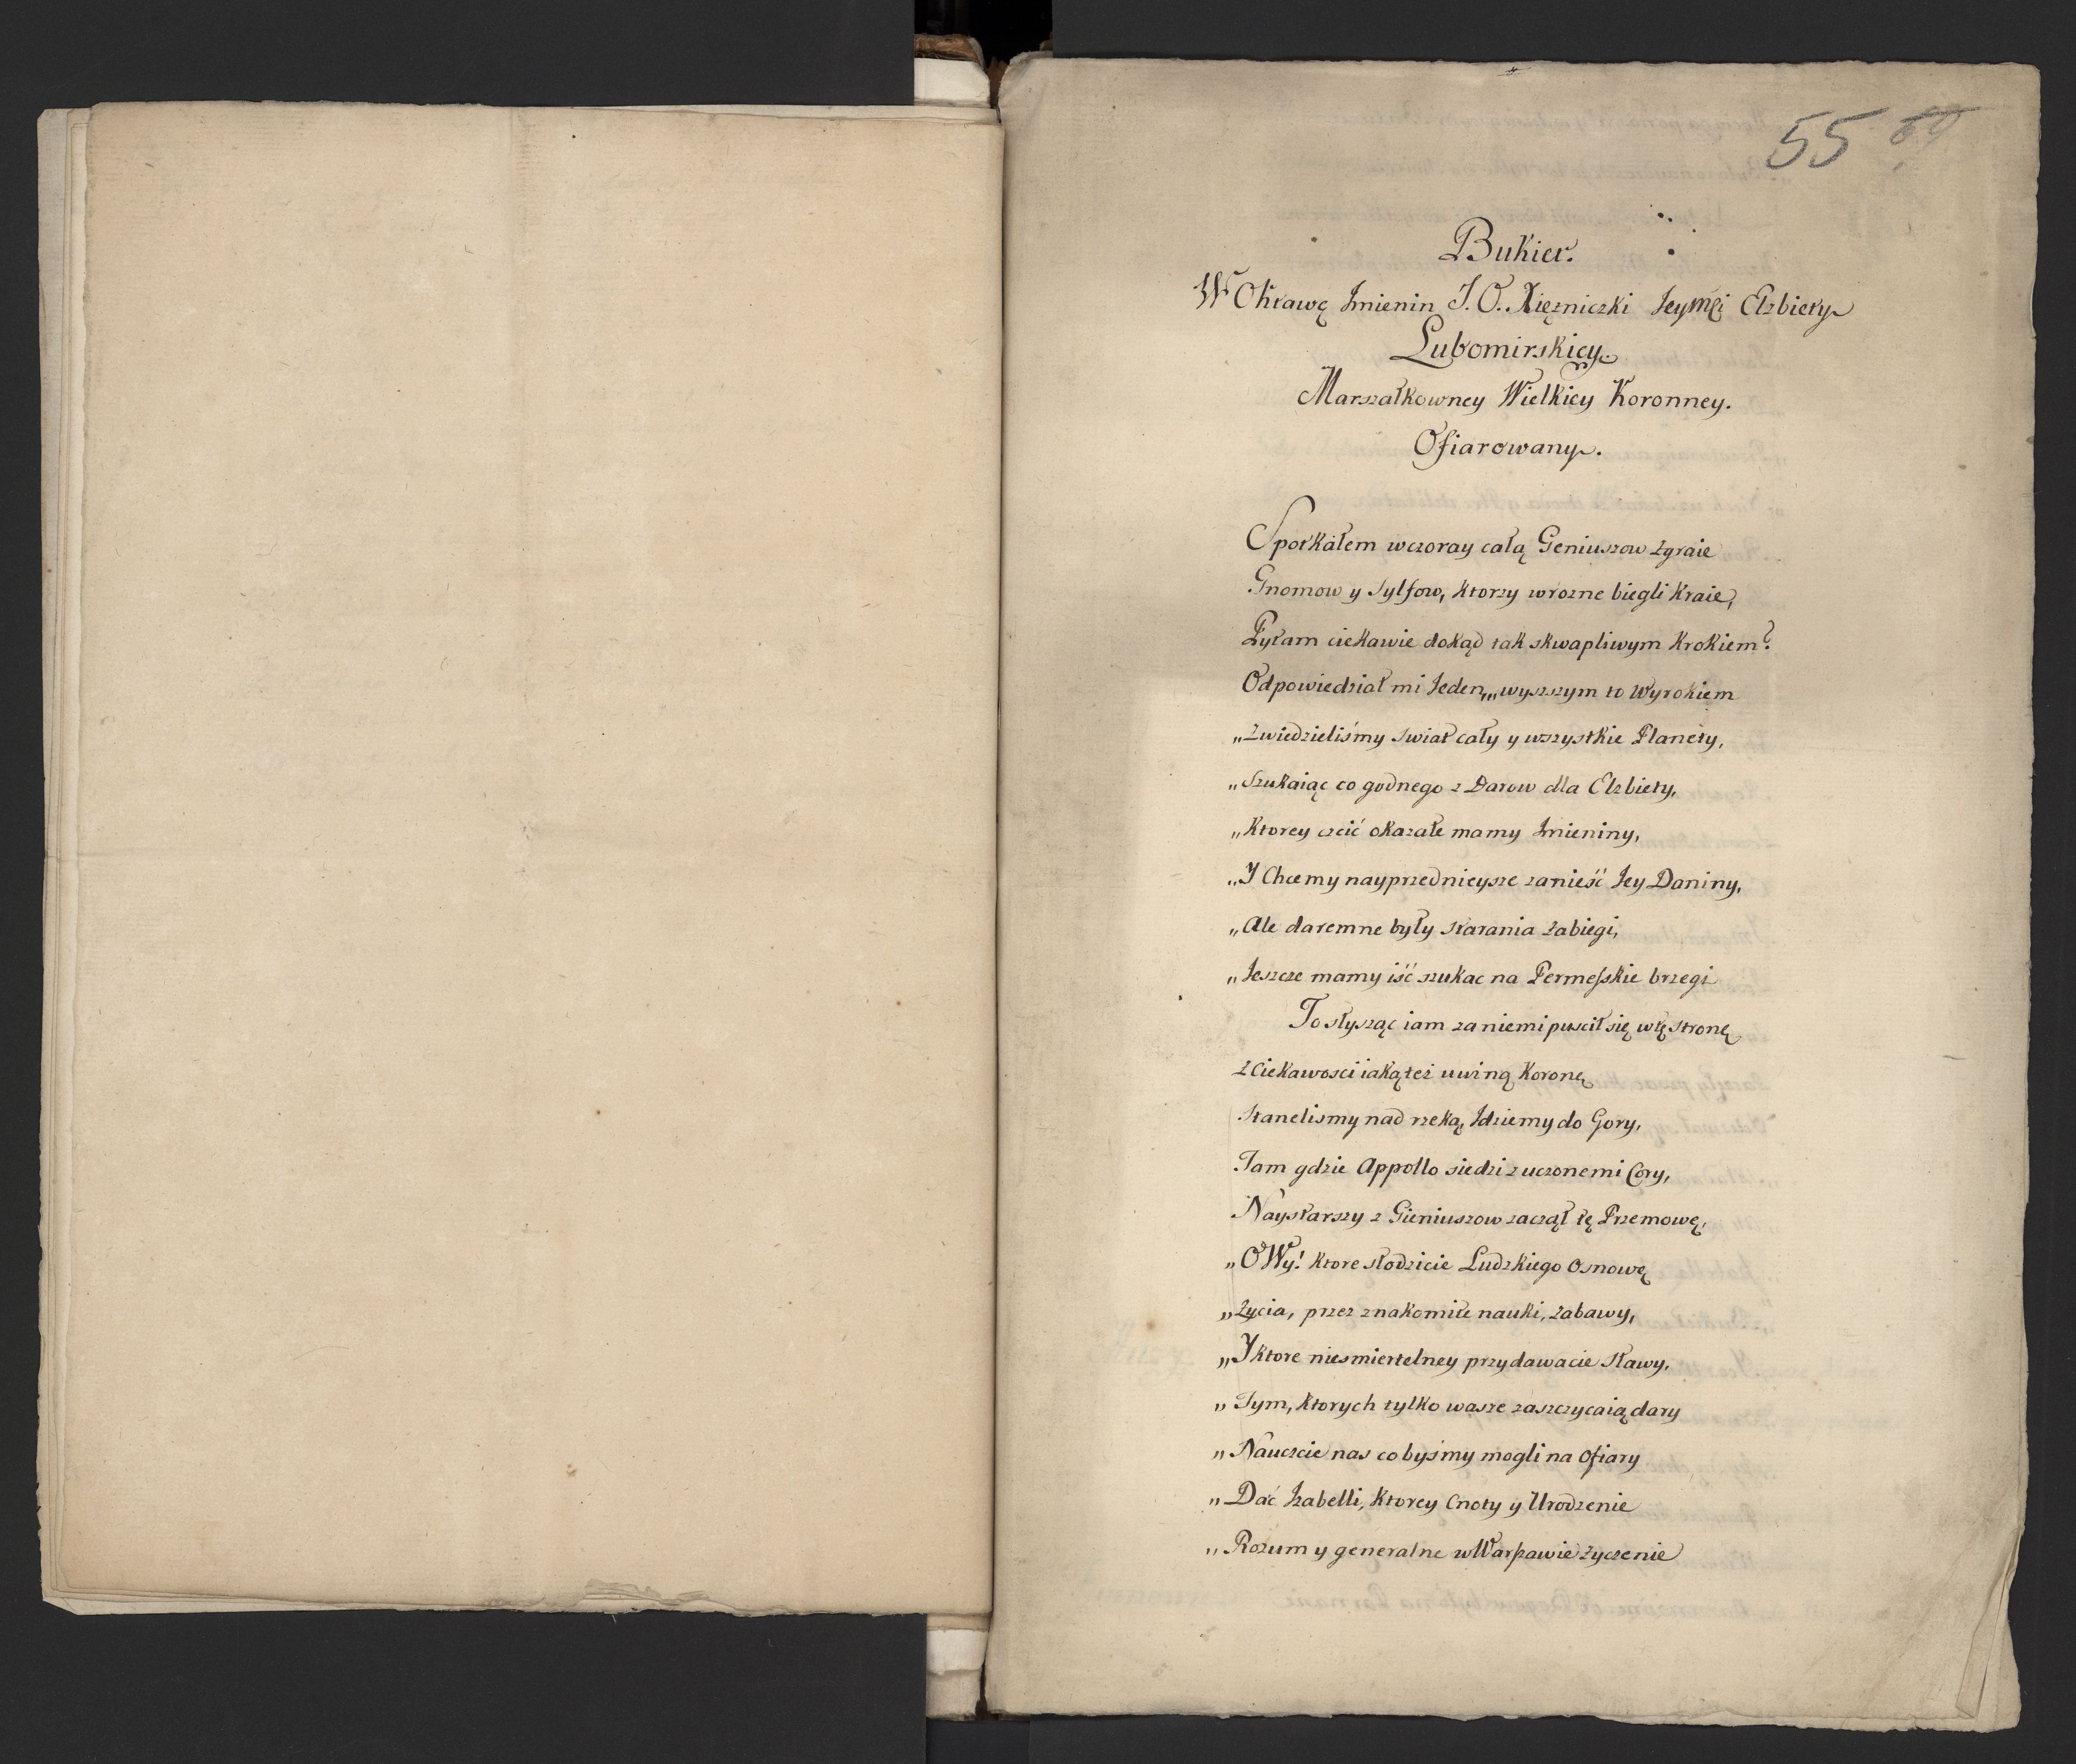 55
Bukiet.
W Oktawę Jmienin J. O. Xięzniczki Jeymći Elzbiety
Lubomirskiey.
Marszałkowney Wielkiey Koronney.
Ofiarowany.
Spotkałem wczoray całą Geniuszow zgraie
Gnomow y Sylfow, ktorzy wrozne biegli kraie,
Pytam ciekawie dokąd tak skwapliwym krokiem?
Odpowiedział mi Jeden „„wyszszym to Wyrokiem
„Zwiedzieliśmy swiat cały y wszystkie Planety,
„Szukaiąc co godnego z Darow dla Elzbiety,
„Ktorey czcić okazałe mamy Jmieniny,
„Y Chcemy nayprzednieysze zanieść Jey Daniny,
„Ale daremne były starania zabiegi,
„Jeszcze mamy iść szukac na Permeſskie brzegi
To słysząc iam za niemi puscił się wtę stronę
z Ciekawosci iaką też uwiną Koronę
Stanelismy nad rzeką, Jdziemy do Gory,
Tam gdzie Appollo siedzi z uczonemi Cory,
Naystarszy z Gieniuszow zaczął tę Przemowę,
„O Wy! ktore słodzicie Ludzkiego Osnowę
„życia, przez znakomite nauki, zabawy,
„Y ktore niesmiertelney przydawacie Sławy,
„Tym, ktorych tylko wasze zaszczycaią dary
„Nauczcie nas co byśmy mogli na Ofiary
„Dać Jzabelli, ktorey Cnoty y Urodzenie
„Rozum y generalne w Warſzawie życzenie